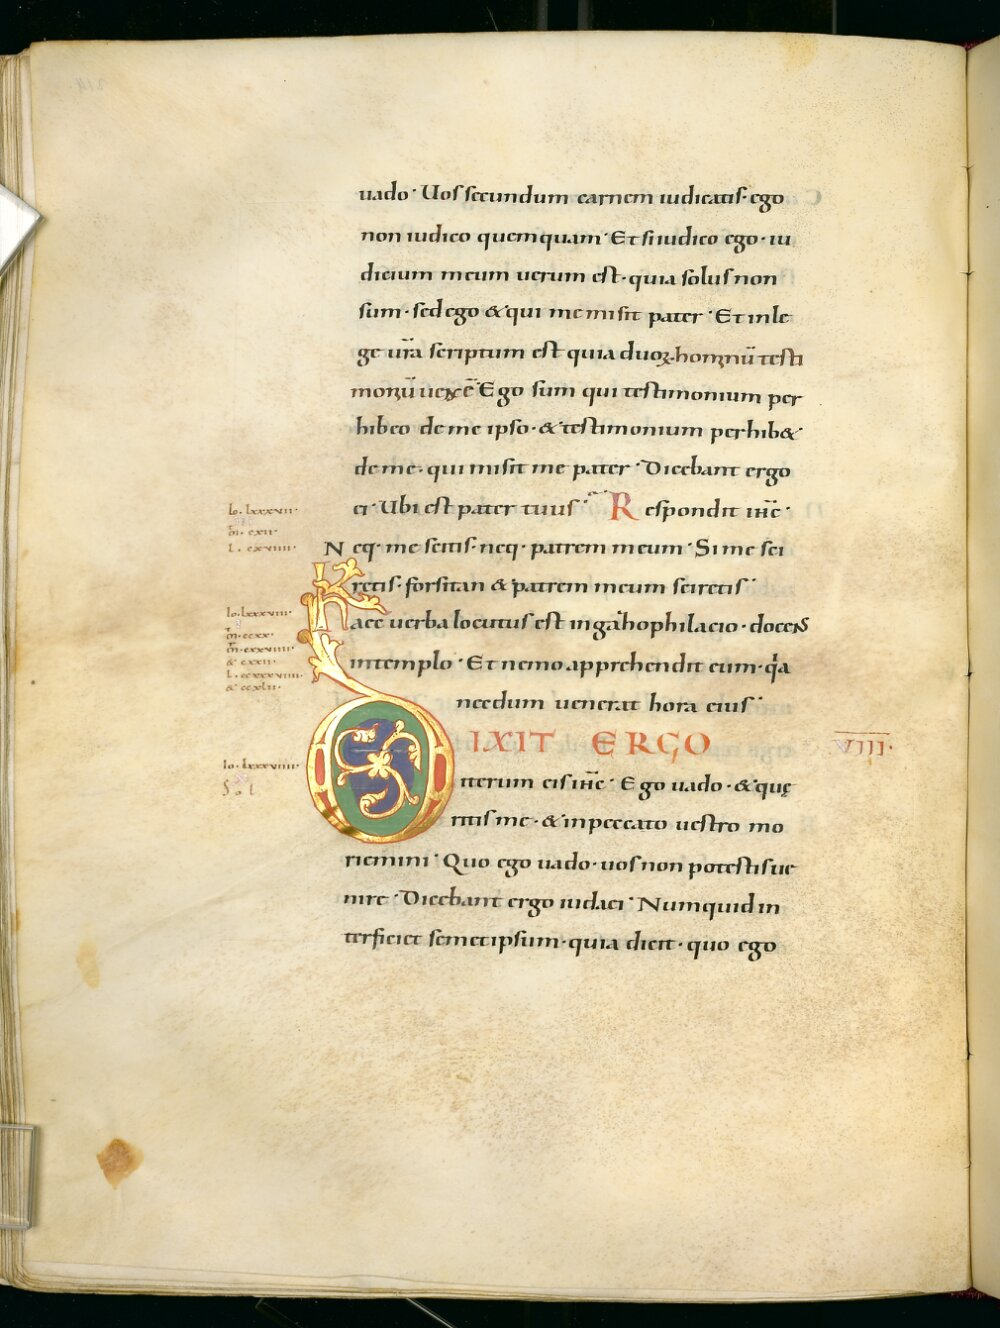 uado · Uos secundum carnem iudicatis · ego
non iudico quemquam · Et si iudico ego · iu
dicium meum uerum est · quia solus non
sum · sed ego & qui me misit pater · Et in le
ge ur̄a scriptum est quia duoꝝ hominū testi
moniū uerū ē Ego sum qui testimonium per
hibeo de me ipso · & testimonium perhib&
de me · qui misit me pater · Dicebant ergo
ei · Ubi est pater tuus · Respondit ih̄c ·
Io. lxxxvii ·
m̄. cxii ·
L. cxviiii ·
Neq · me scitis · neq · patrem meum · Si me sci
retis · forsitan & patrem meum sciretis ·
Io. lxxxviii ·
m̄. ccxx ·
m̄. cxxviiii ·
& cxxii ·
L. ccxxxviiii ·
& ccxlii ·
Haec uerba locutus est in gazophilacio · docens
in templo · Et nemo apprehendit eum · qa
necdum uenerat hora eius ·
DIXIT ERGO
VIII ·
Io. lxxxviiii ·
Sol
iterum eis ih̄c · Ego uado · & quę
ritis me · & in peccato uestro mo
riemini · Quo ego uado · uos non potestis ue
nire · Dicebant ergo iudaei · Numquid in
terficiet semetipsum · quia dicit · quo ego